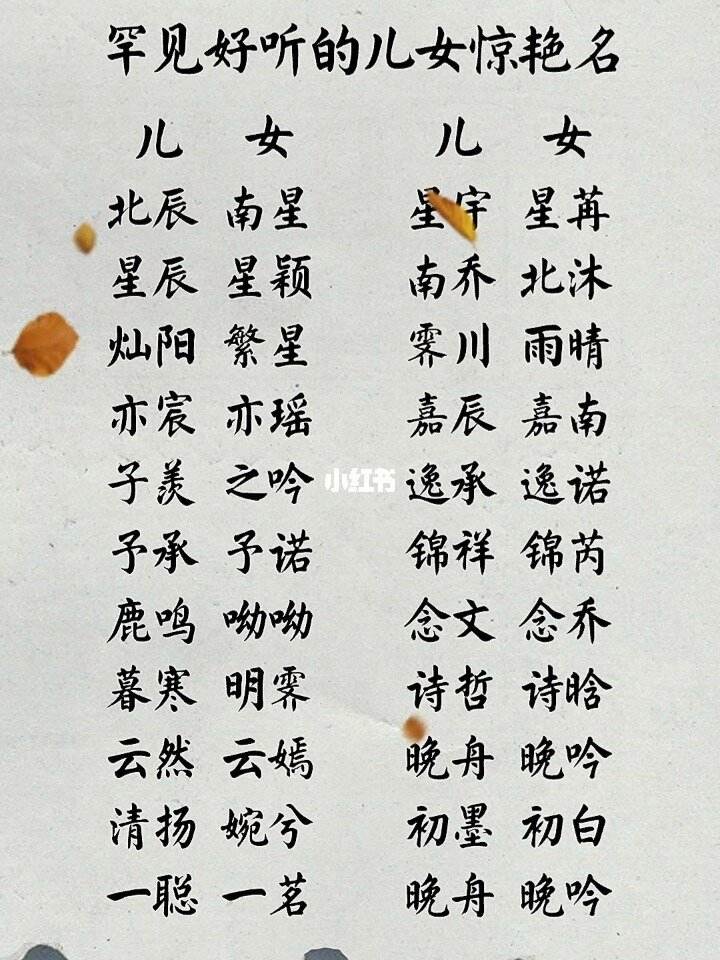 罕见好听的儿女惊艳名
儿 女 儿 女
北辰 南星 星宇 星苒
星辰 星颖 南乔 北沐
灿阳 繁星 霁川 雨晴
亦宸 亦瑶 嘉辰 嘉南
子羡 之吟 逸承 逸诺
小红书
予承 予诺 锦祥 锦芮
鹿鸣 呦呦 念文 念乔
暮寒 明霁 诗哲 诗晗
云然 云嫣 晚舟 晚吟
清扬 婉兮 初墨 初白
一聪 一茗 晚舟 晚吟